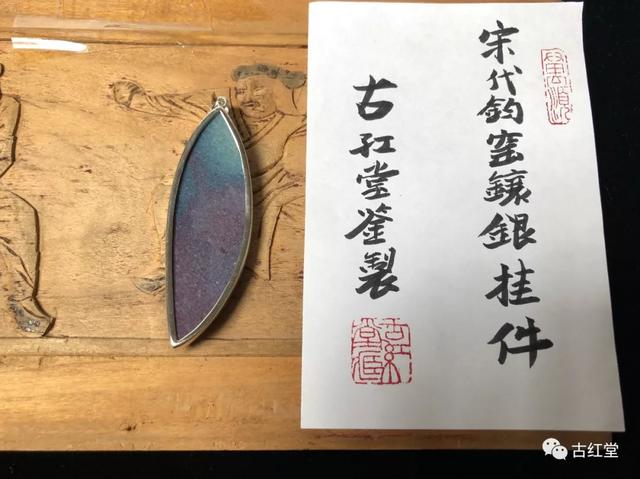 宋代钧窑鑲銀挂件
古红堂鉴製
古红堂